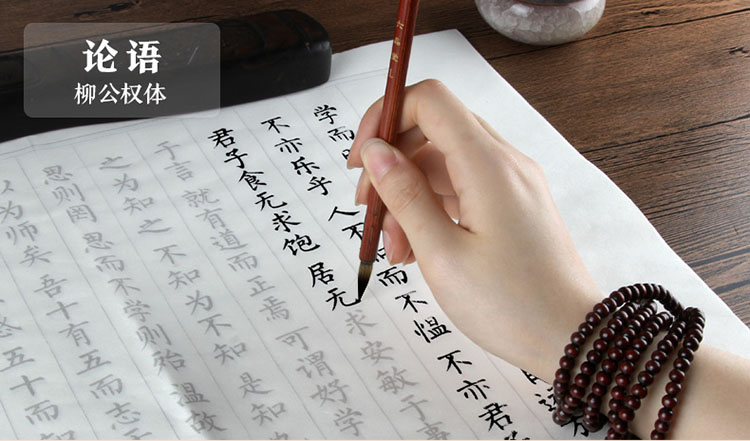 论语
柳公权体
学而
不亦乐乎 人不知而不愠 不亦君
君子食无求饱 居无求安敏于事
于言就有道而正焉 可谓好学
之为知之 不知为不知是知
思则罔 思而不学则殆 温故
以为师矣 吾十有五而志
惑 五十而知